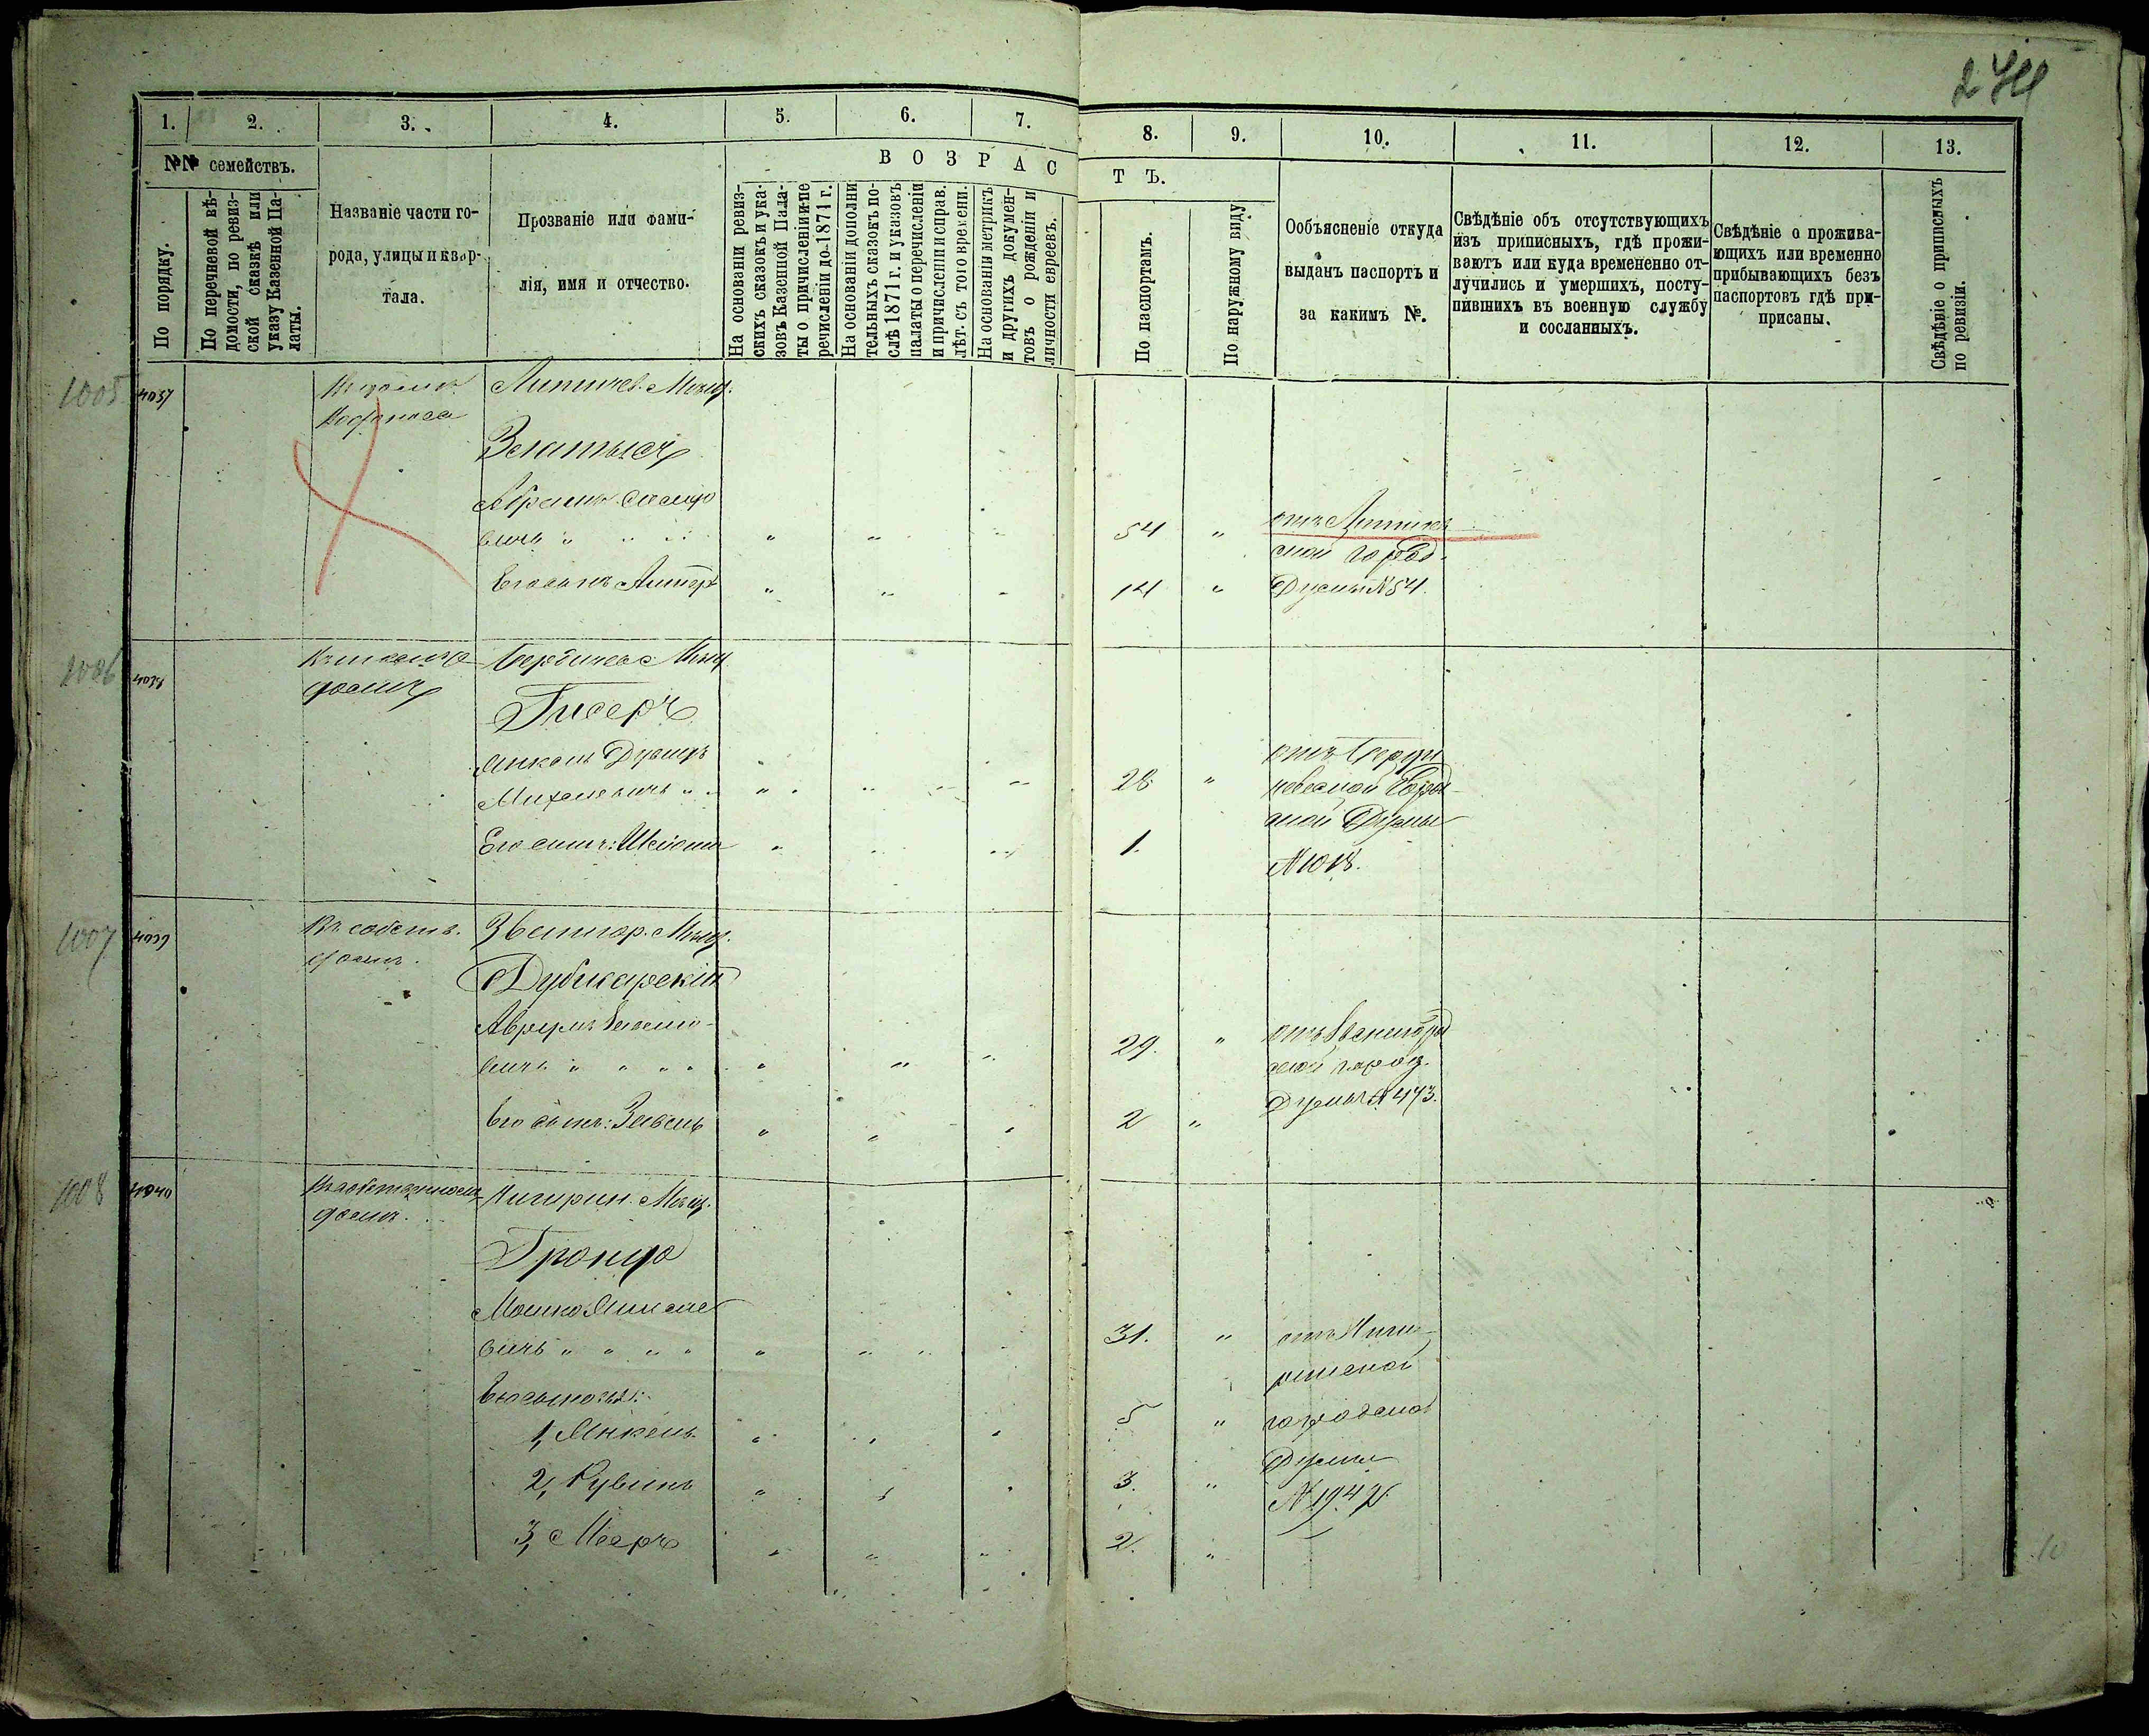 1. 2. 3. 4. 5. 6. 7. 8. 9. 10. 11. 12. 13.
№№ семействъ.
По порядку.
По перечневой вѣ-
домости, по ревиз-
ской сказкѣ или
указу Казенной Па-
латы.
Названіе части го-
рода, улицы и квар-
тала.
Прозваніе или фами-
лія, имя и отчество.
ВОЗРАСТЪ.
На основаніи ревиз-
скихъ сказокъ и ука-
зовъ Казенной Пала-
ты о причисленіи и пе
речисленіи до 1871 г.
На основаніи дополни
тельныхъ сказокъ по-
слѣ 1871 г. и указовъ
палаты о перечисленіи
и причисленіи и справ.
лѣт. съ того времени.
На основаніи метрикъ
и другихъ докумен-
товъ о рожденіи и
личности евреевъ.
По паспортамъ.
По наружному виду
Ообъясненіе откуда
выданъ паспортъ и
за какимъ №.
Свѣдѣніе объ отсутствующихъ
изъ приписныхъ, гдѣ прожи-
ваютъ или куда времененно от-
лучились и умершихъ, посту-
пившихъ въ военную службу
и сосланныхъ.
Свѣдѣніе о прожива-
ющихъ или временно
прибывающихъ безъ
паспортовъ гдѣ при-
присаны.
Свѣдѣніе о приписныхъ
по ревизіи.
1005 4037
Литичев. Мѣщ.
Абрамъ
вичъ " " "
54 "
отъ Литин
ской город.
Его сынъ
14 "
Думы № 54.
1006 4038
домѣ
Бердичевс Мѣщ
Гисеръ
Янкель Дувидъ
отъ Берди
Михелевичъ " "
28 "
чевской Город
ской Думы
Его сынъ:
1.
№ 1018.
1007 4039
Въ собств.
домѣ.
Звенигор. Мѣщ.
Аврумъ
отъ Звенигород
вичъ " " " "
29. "
ской город.
Думы № 473.
Его сынъ: Зейвель
2 "
1008 4040
Въ собственномъ
домѣ.
Чигирин. Мѣщ.
Мошко Янкеле
вичъ " " " "
31. "
отъ Чиги
ринской
Его сыновья:
1, Янкель
5 "
городской
Думы
2, Рувинъ
3. "
3, Мееръ
2. "